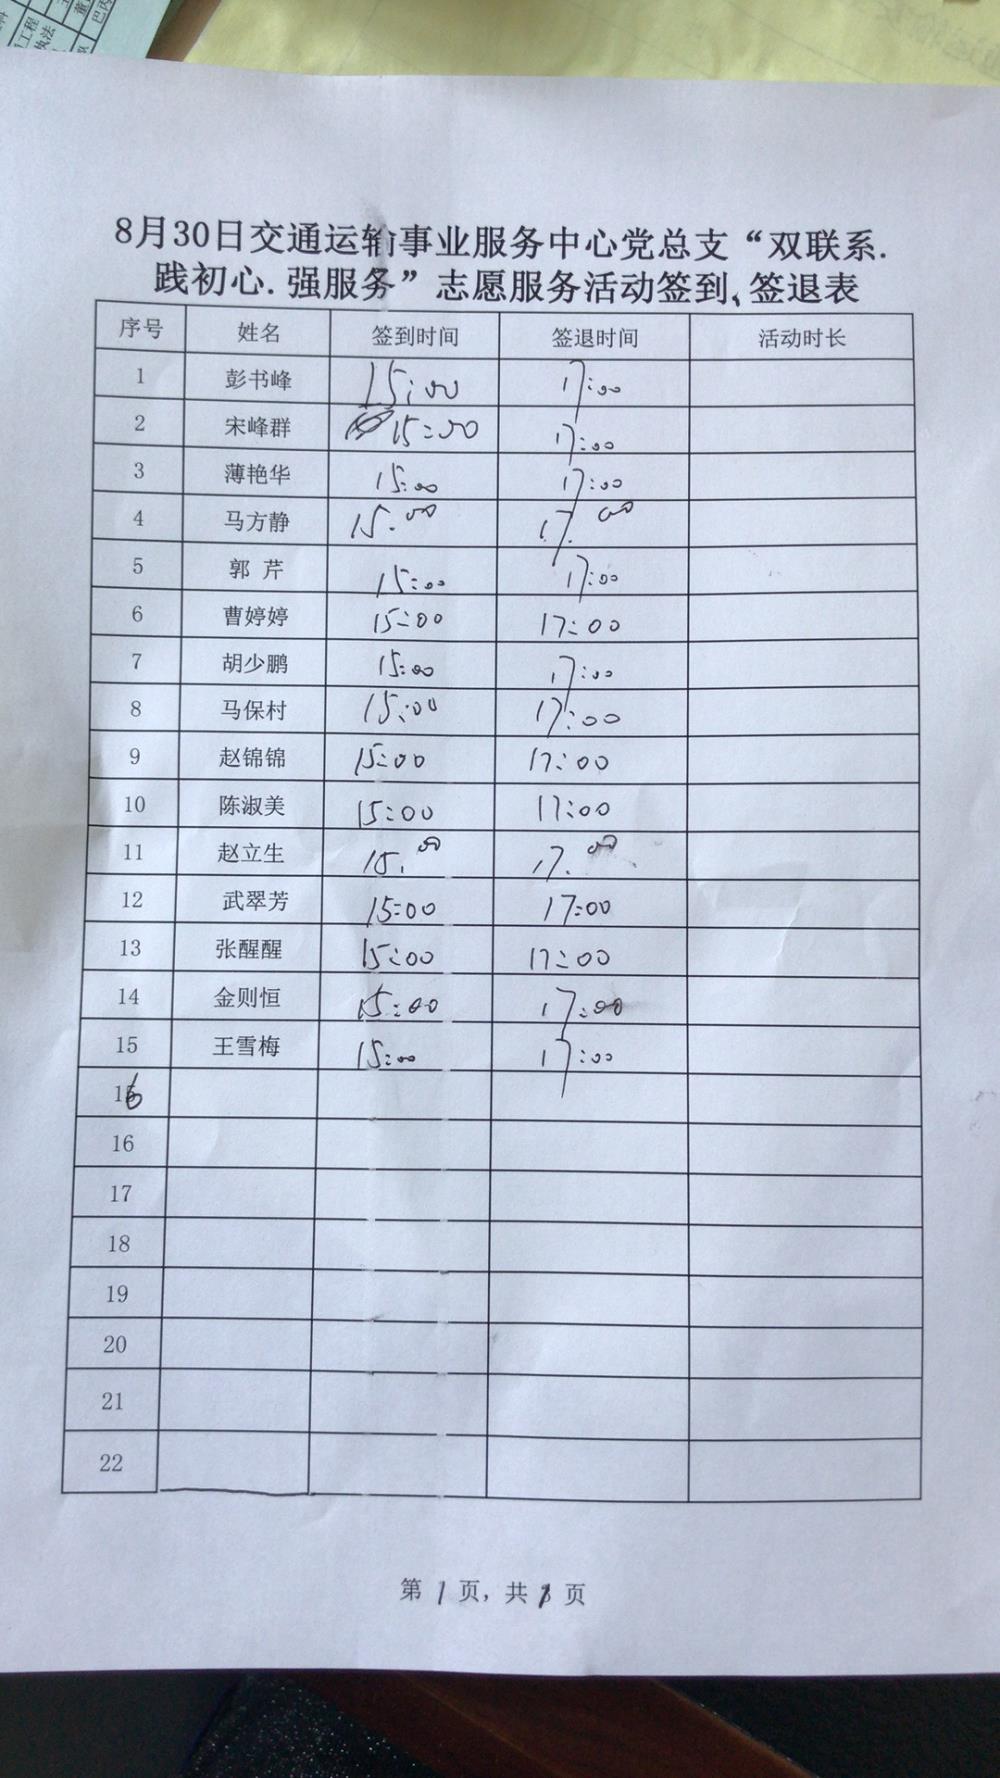 工程
执法
8月30日交通运输事业服务中心党总支“双联系.
践初心.强服务”志愿服务活动签到、签退表
序号 姓名 签到时间 签退时间 活动时长
1 彭书峰 15:00 17:00
2 宋峰群 15:00 17:00
3 薄艳华 15:00 17:00
4 马方静 15.00 17.00
5 郭 芹 15:00 17:00
6 曹婷婷 15:00 17:00
7 胡少鹏 15:00 17:00
8 马保村 15:00 17:00
9 赵锦锦 15:00 17:00
10 陈淑美 15:00 17:00
11 赵立生 15.00 17.00
12 武翠芳 15:00 17:00
13 张醒醒 15:00 17:00
14 金则恒 15:00 17:00
15 王雪梅 15:00 17:00
16
16
17
18
19
20
21
22
第 1 页，共 1 页